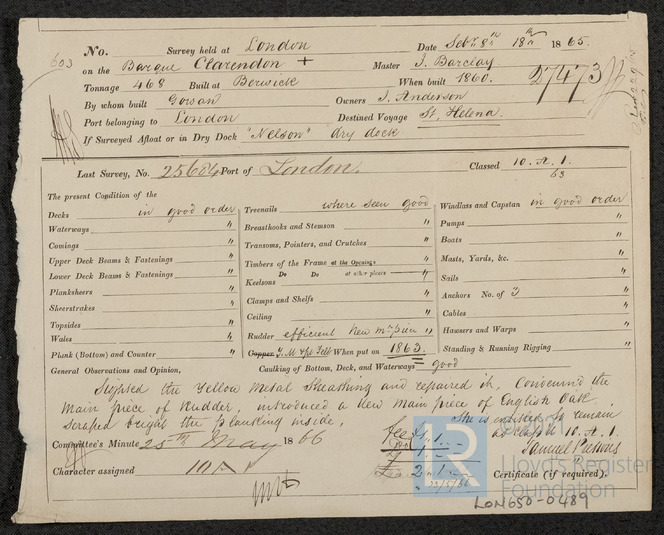 603
No. Survey held at London Date Feby 8th 18th 1865.
on the Barque Clarendon + Master J. Barclay
Tonnage 468 Built at Berwick When built 1860. 27473
By whom built Gowan Owners J. Anderson
Port belonging to London Destined Voyage St. Helena.
If Surveyed Afloat or in Dry Dock "Nelson" dry dock
Last Survey, No. 25684 Port of London. Classed 10. A. 1.
63
The present Condition of the
Decks in good order
Waterways "
Comings "
Upper Deck Beams & Fastenings "
Lower Deck Beams & Fastenings "
Planksheers "
Sheerstrakes "
Topsides "
Wales "
Plank (Bottom) and Counter "
Treenails where seen good
Breasthooks and Stemson "
Transoms, Pointers, and Crutches "
Timbers of the Frame at the Openings "
Do Do at other places "
Keelsons "
Clamps and Shelfs "
Ceiling "
Rudder efficient New mn piece "
Copper Y. M. Felt When put on 1863.
Caulking of Bottom, Deck, and Waterways = good
Windlass and Capstan in good order
Pumps "
Boats "
Masts, Yards, &c. "
Sails "
Anchors No. of 3 "
Cables "
Hawsers and Warps "
Standing & Running Rigging "
General Observations and Opinion,
Stripted the Yellow Metal Sheathing and repaired it, Condemn'd the
Main piece of Rudder, introduced a New Main piece of English Oak
Scraped bright the planking inside.
She is entitled to remain
as class'd 10. A. 1.
Samuel Pretious
Committee's Minute 25th May 1866
Character assigned 10 A 1
Certificate (if required).
© 2021
LR
Lloyd's Register
Foundation
LON650-0489